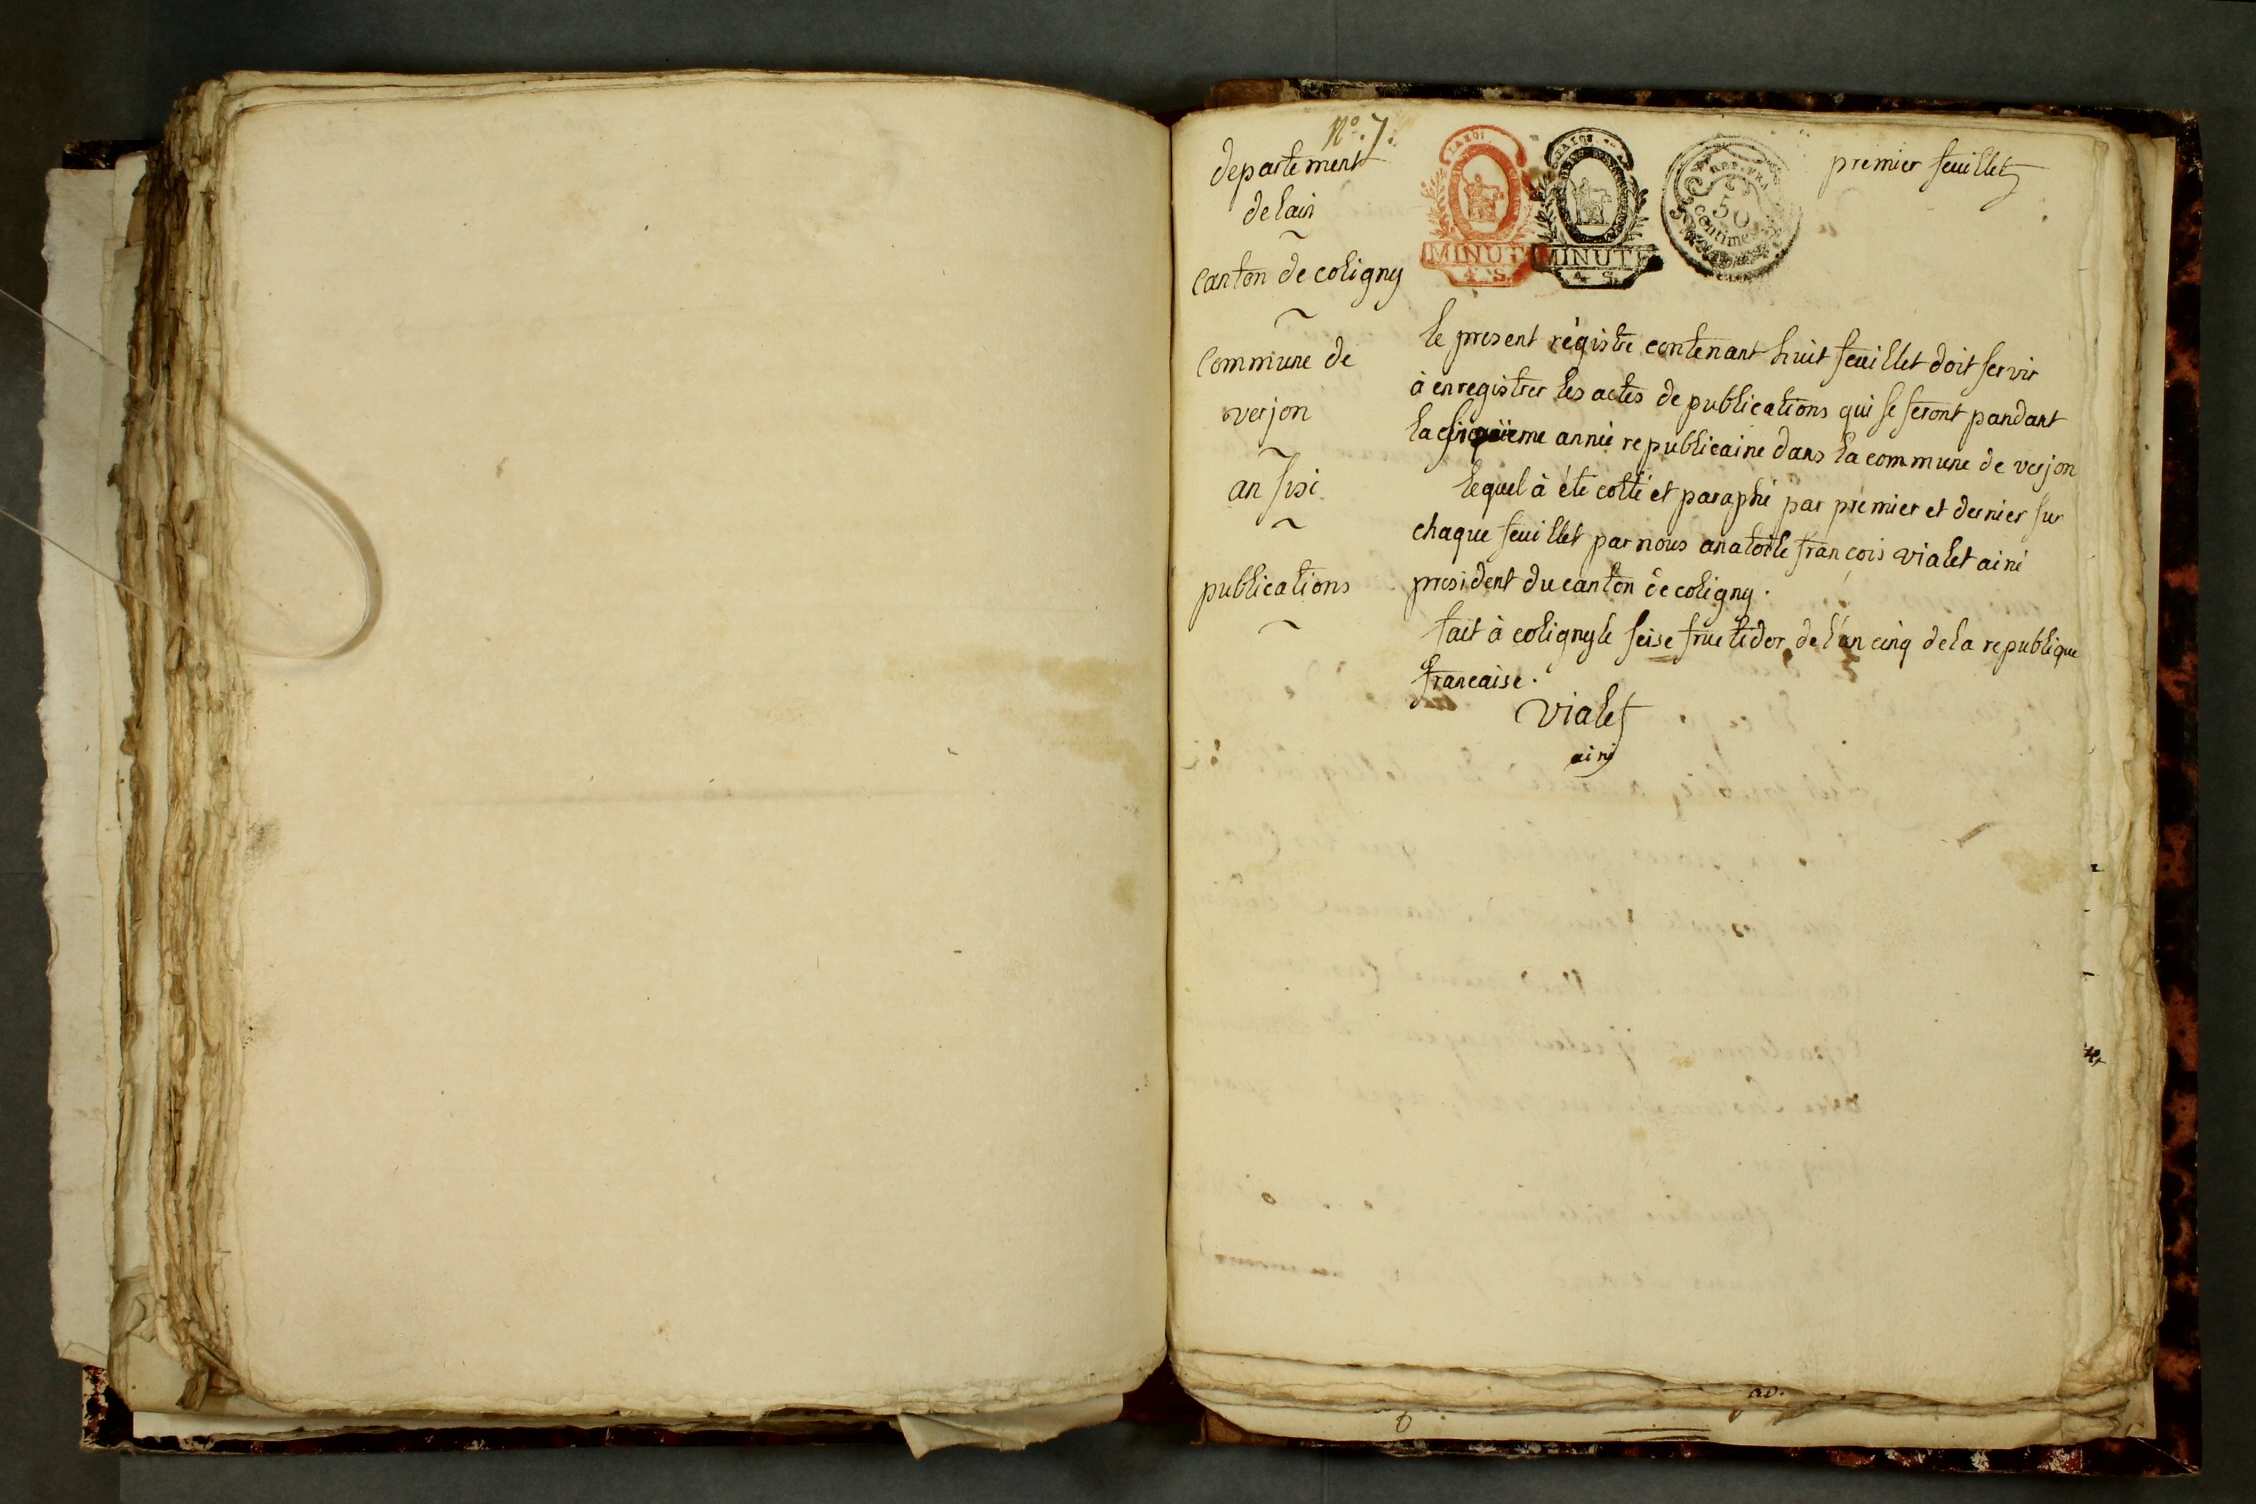 No. 7.
departement
de lain
canton de coligny
commune de
verjon
an sisi
publications
premier feuillet
MINUT
4. S.
MINUTE
4. S.
REP. FRA
50
centimes
le present régistre contenant huit feuillet doit servir
à enregistrer les actes de publications qui se feront pandant
la année republicaine dans la commune de verjon
lequel à été cotté et paraphé par premier et dernier sur
chaque feuillet par nous anatoile francois vialet ainé
president du canton de coligny.
fait à coligny le seise fructidor de l'an cinq de la republique
francaise.
vialet
ainé